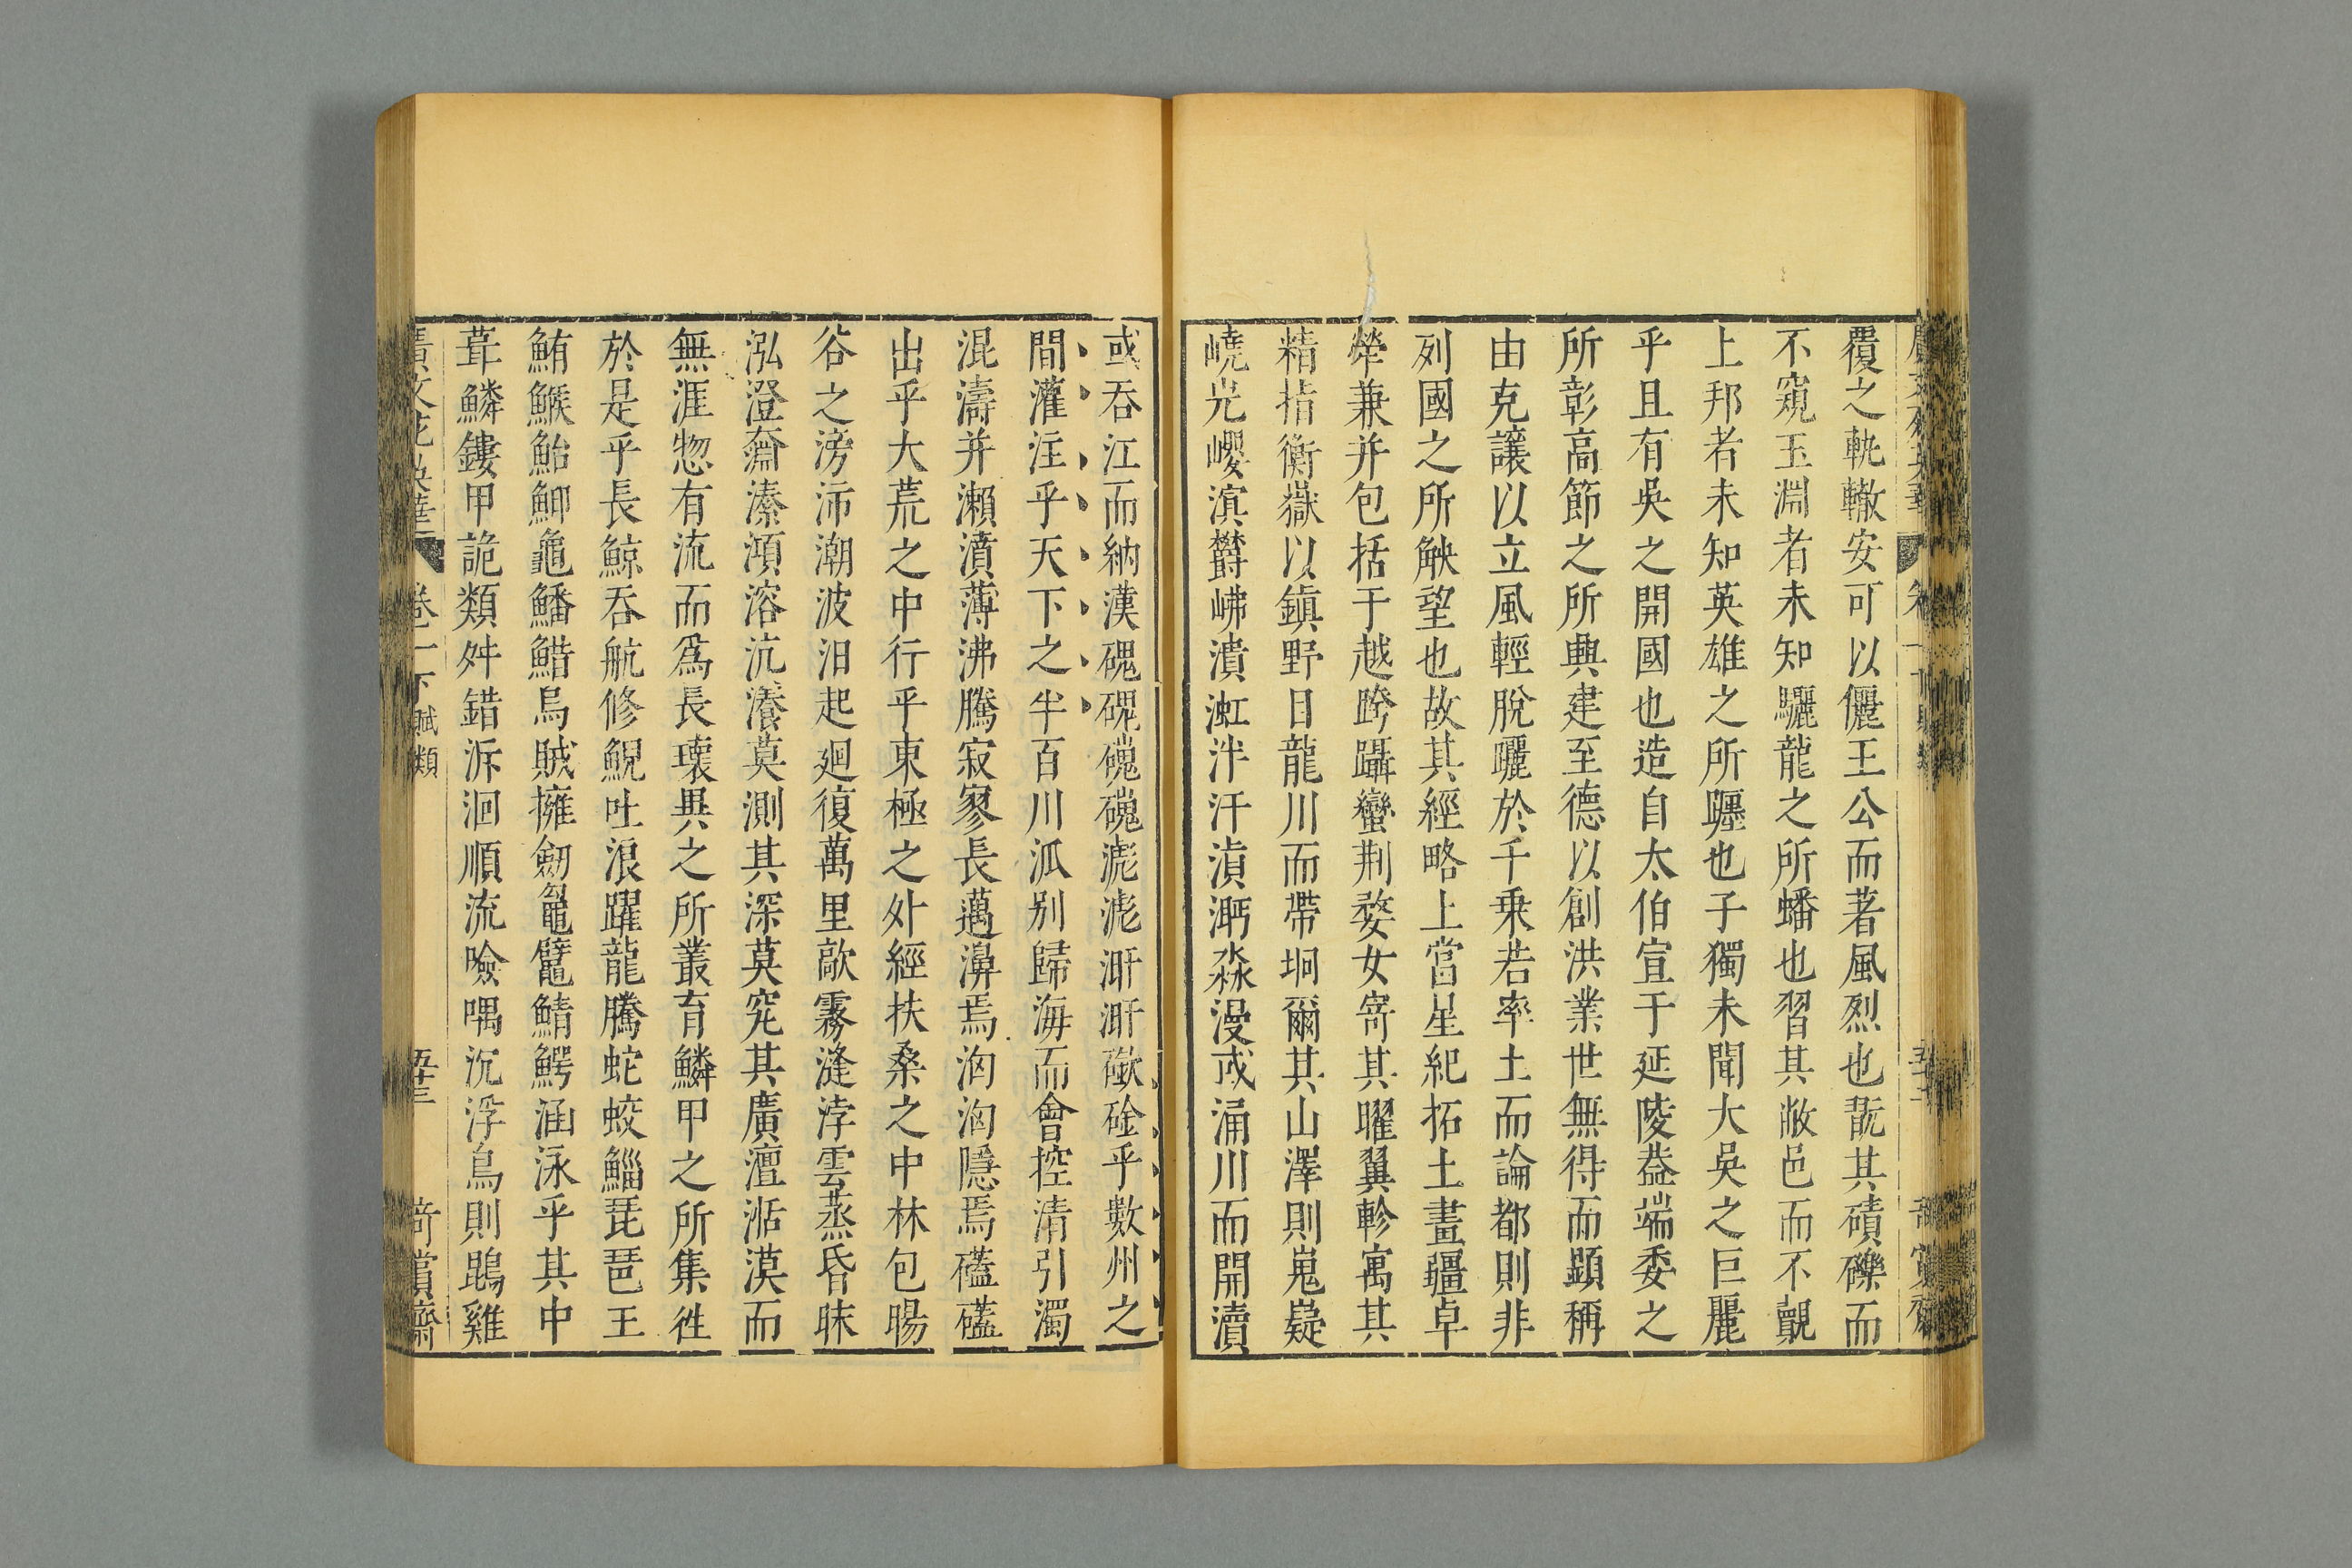 覆之軌轍安可以儷王公而著風烈也翫其磧礫而
不窺玉淵者未知驪龍之所蟠也習其敝邑而不覿
上邦者未知英雄之所躔也子獨未聞大吳之巨麗
乎且有吳之開國也造自太伯宣于延陵葢端委之
所彰高節之所興建至德以創洪業世無得而顯稱
由克讓以立風輕脫躧於千乗若率土而論都則非
列國之所觖望也故其經略上當星紀拓土畫疆卓
犖兼并包括于越跨躡蠻荆婺女寄其曜翼軫寓其
精指衡嶽以鎮野目龍川而帶坰爾其山澤則嵬嶷
嶢屼巊溟欝岪潰渱泮汗滇㴐淼漫或涌川而開瀆
或吞江而納漢磈磈磥磥滮滮涆涆礮硶乎數州之
間灌注乎天下之半百川泒别歸海而會控清引濁
混濤并瀨濆薄沸騰寂寥長邁濞焉洶洶隱焉礚礚
出乎大荒之中行乎東極之外經扶桑之中林包暘
谷之滂沛潮波汩起廻復萬里歊霧漨浡雲蒸昏昧
泓澄奫潫澒溶沆瀁莫測其深莫究其廣澶湉漠而
無涯惣有流而爲長瓌異之所叢育鱗甲之所集徃
於是乎長鯨吞航修鯢吐浪躍龍騰蛇蛟鯔琵琶王
鮪鯸鮐鮣龜鱕䱜烏賊擁劒鼊鼊鯖鰐涵泳乎其中
葺鱗鏤甲詭類舛錯泝洄順流噞喁沉浮鳥則鵾雞
廣文苑英華 卷一下 賦類 五十三 奇賞齋